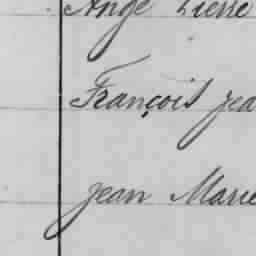 Ange Pierre
François Jea
Jean Marie